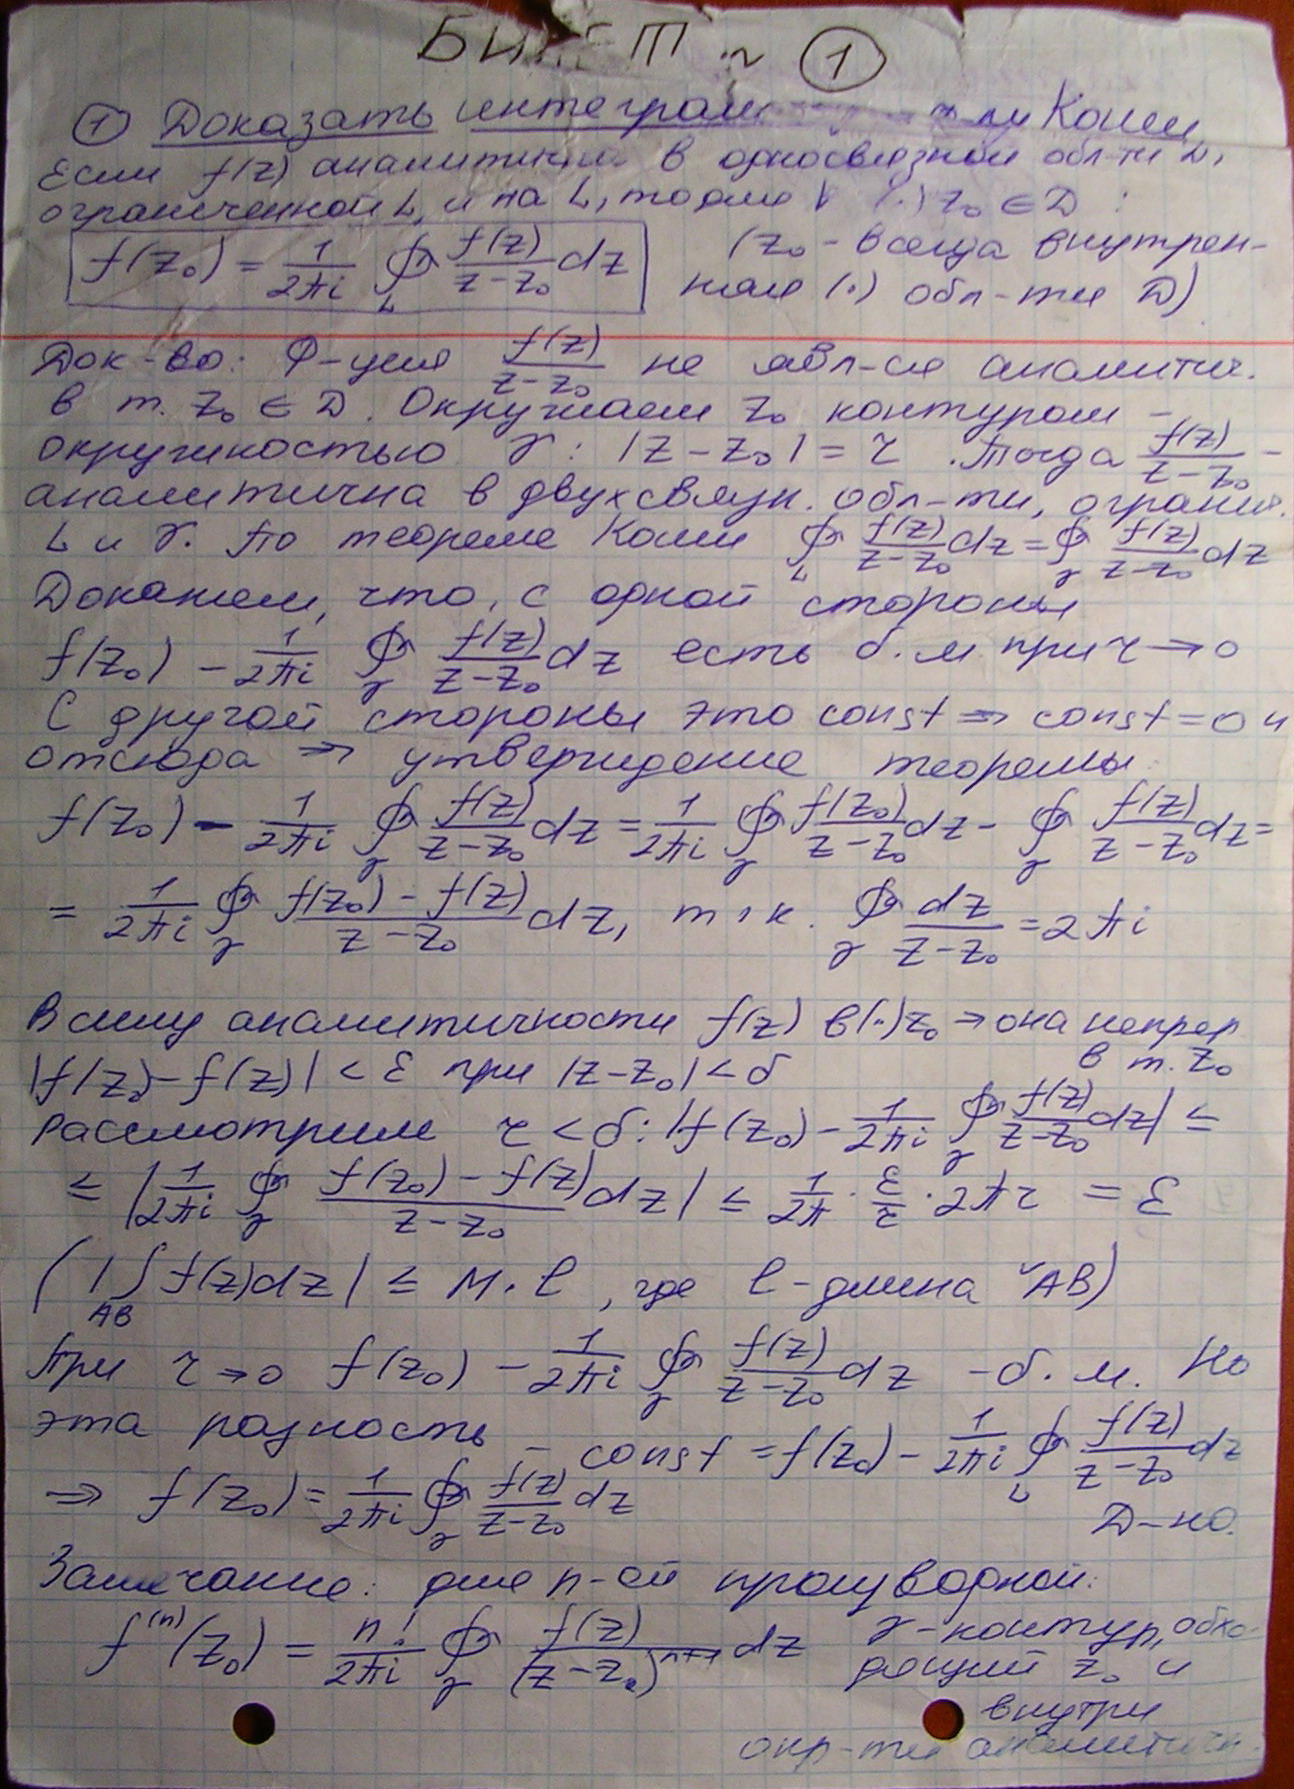 БИЛЕТ № 1
① Доказать интеграл Коши
Если f(z) аналитична в односвязной обл-ти D,
ограниченной L, и на L, то для ∀ (·) z₀ ∈ D :
f(z₀) = 1/2πi ∮_L f(z)/(z-z₀) dz (z₀ - всегда внутрен-
няя (·) обл-ти D)
Док-во: Ф-ция f(z)/(z-z₀) не явл-ся аналитич.
в т. z₀ ∈ D. Окружаем z₀ контуром -
окружностью γ : |z - z₀| = r. Тогда f(z)/(z-z₀) -
аналитична в двухсвязн. обл-ти, огранич.
L и γ. По теореме Коши ∮_L f(z)/(z-z₀) dz = ∮_γ f(z)/(z-z₀) dz
Докажем, что, с одной стороны
f(z₀) - 1/2πi ∮_γ f(z)/(z-z₀) dz есть б.м. при r → 0
С другой стороны это const ⇒ const = 0 и
отсюда ⇒ утверждение теоремы.
f(z₀) - 1/2πi ∮_γ f(z)/(z-z₀) dz = 1/2πi ∮_γ f(z₀)/(z-z₀) dz - ∮_γ f(z)/(z-z₀) dz =
= 1/2πi ∮_γ (f(z₀) - f(z))/(z-z₀) dz, т.к. ∮_γ dz/(z-z₀) = 2πi
В силу аналитичности f(z) в (·) z₀ → она непрер.
в т. z₀
|f(z₀) - f(z)| < ε при |z-z₀| < δ
Рассмотрим r < δ: |f(z₀) - 1/2πi ∮_γ f(z)/(z-z₀) dz| ≤
≤ |1/2πi ∮_γ (f(z₀) - f(z))/(z-z₀) dz| ≤ 1/2π · ε/r · 2πr = ε
(|∫_AB f(z)dz| ≤ M · l , где l - длина ◡AB)
При r → 0 f(z₀) - 1/2πi ∮_γ f(z)/(z-z₀) dz - б.м. Но
эта разность - const = f(z₀) - 1/2πi ∮_L f(z)/(z-z₀) dz
⇒ f(z₀) = 1/2πi ∮_γ f(z)/(z-z₀) dz
Д-но.
Замечание: для n-ой производной:
f⁽ⁿ⁾(z₀) = n!/2πi ∮_γ f(z)/(z-z₀)ⁿ⁺¹ dz γ - контур, обхо-
дящий z₀ и
внутри
окр-ти аналитичн.